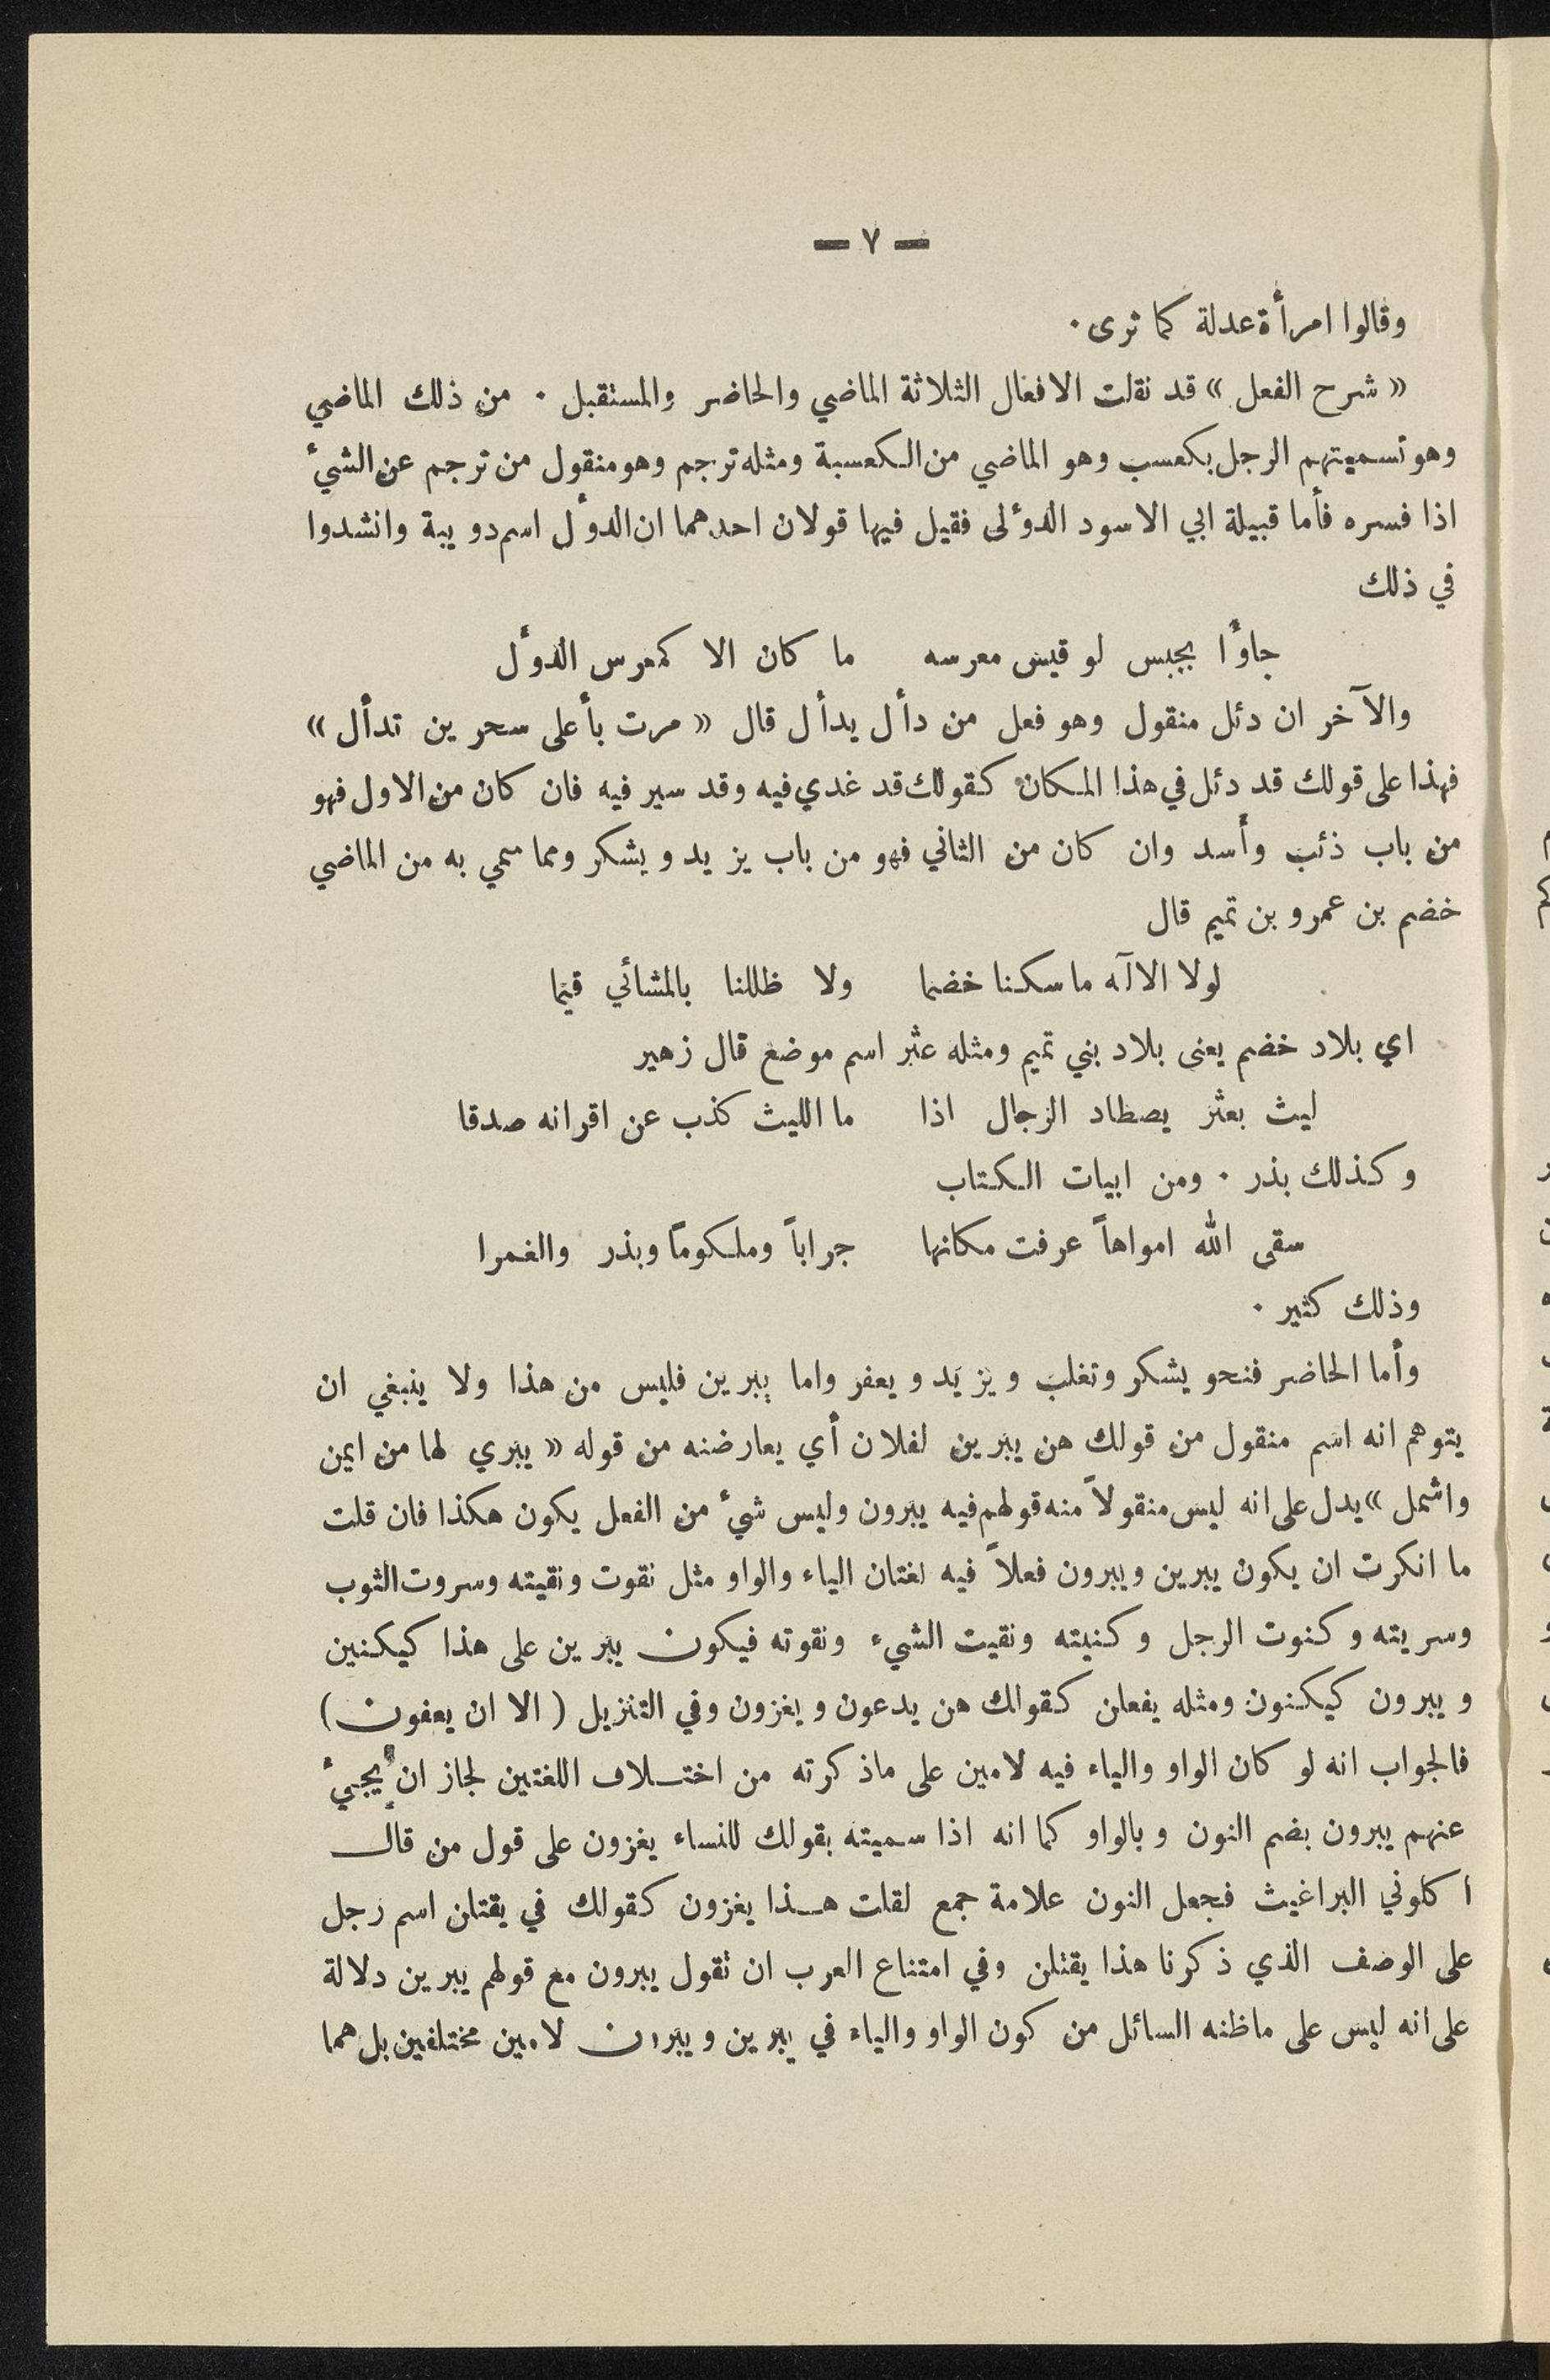 — ٧ —
وقالوا امرأة عدلة كما ترى ·
« شرح الفعل » قد نقلت الافعال الثلاثة الماضي والحاضر والمستقبل · من ذلك الماضي
وهو تسميتهم الرجل بكعسب وهو الماضي من الكعسبة ومثله ترجم وهو منقول من ترجم عن الشيءٔ
اذا فسره فأما قبيلة ابي الاسود الدؤلى فقيل فيها قولان احدهما ان الدؤل اسم دويبة وانشدوا
في ذلك
جاؤا بجبس لو قيس معرسه ما كان الا كمعرس الدوأل
والآخر ان دئل منقول وهو فعل من دأل يدأل قال « مرت بأعلى سحرين تدأل »
فهذا على قولك قد دئل في هذا المكان كقولك قد غدي فيه وقد سير فيه فان كان من الاول فهو
من باب ذئب وأسد وان كان من الثاني فهو من باب يزيد ويشكر ومما سمي به من الماضي
خضم بن عمرو بن تميم قال
لولا الاآه ما سكنا خضما ولا ظللنا بالمشائي قيما
اي بلاد خضم يعنى بلاد بني تميم ومثله عثر اسم موضع قال زهير
ليث بعثر يصطاد الرجال اذا ما الليث كذب عن اقرانه صدقا
وكذلك بذر · ومن ابيات الكتاب
سقى الله امواهاً عرفت مكانها جراباً وملكوماً وبذر والغمرا
وذلك كثير ·
وأما الحاضر فنحو يشكر وتغلب ويزيد ويعفر واما يبرين فليس من هذا ولا ينبغي ان
يتوهم انه اسم منقول من قولك هن يبرين لفلان أي يعارضنه من قوله « يبري لها من ايمن
واشمل » يدل على انه ليس منقولاً منه قولهم فيه يبرون وليس شيءٔ من الفعل يكون هكذا فان قلت
ما انكرت ان يكون يبرين ويبرون فعلاً فيه لغتان الياء والواو مثل نقوت ونقيته وسروت الثوب
وسريته وكنوت الرجل وكنيته ونقيت الشيء ونقوته فيكون يبرين على هذا كيكنين
ويبرون كيكنون ومثله يفعلن كقولك هن يدعون ويغزون وفي التنزيل ( الا ان يعفون )
فالجواب انه لو كان الواو والياء فيه لامين على ماذكرته من اختلاف اللغتين لجاز ان يجيءٔ
عنهم يبرون بضم النون وبالواو كما انه اذا سميته بقولك للنساء يغزون على قول من قال
اكلوني البراغيث فجعل النون علامة جمع لقلت هذا يغزون كقولك في يقتلن اسم رجل
على الوصف الذي ذكرنا هذا يقتلن وفي امتناع العرب ان تقول يبرون مع قولهم يبرين دلالة
على انه ليس على ماظنه السائل من كون الواو والياء في يبرين ويبرون لامين مختلفين بل هما